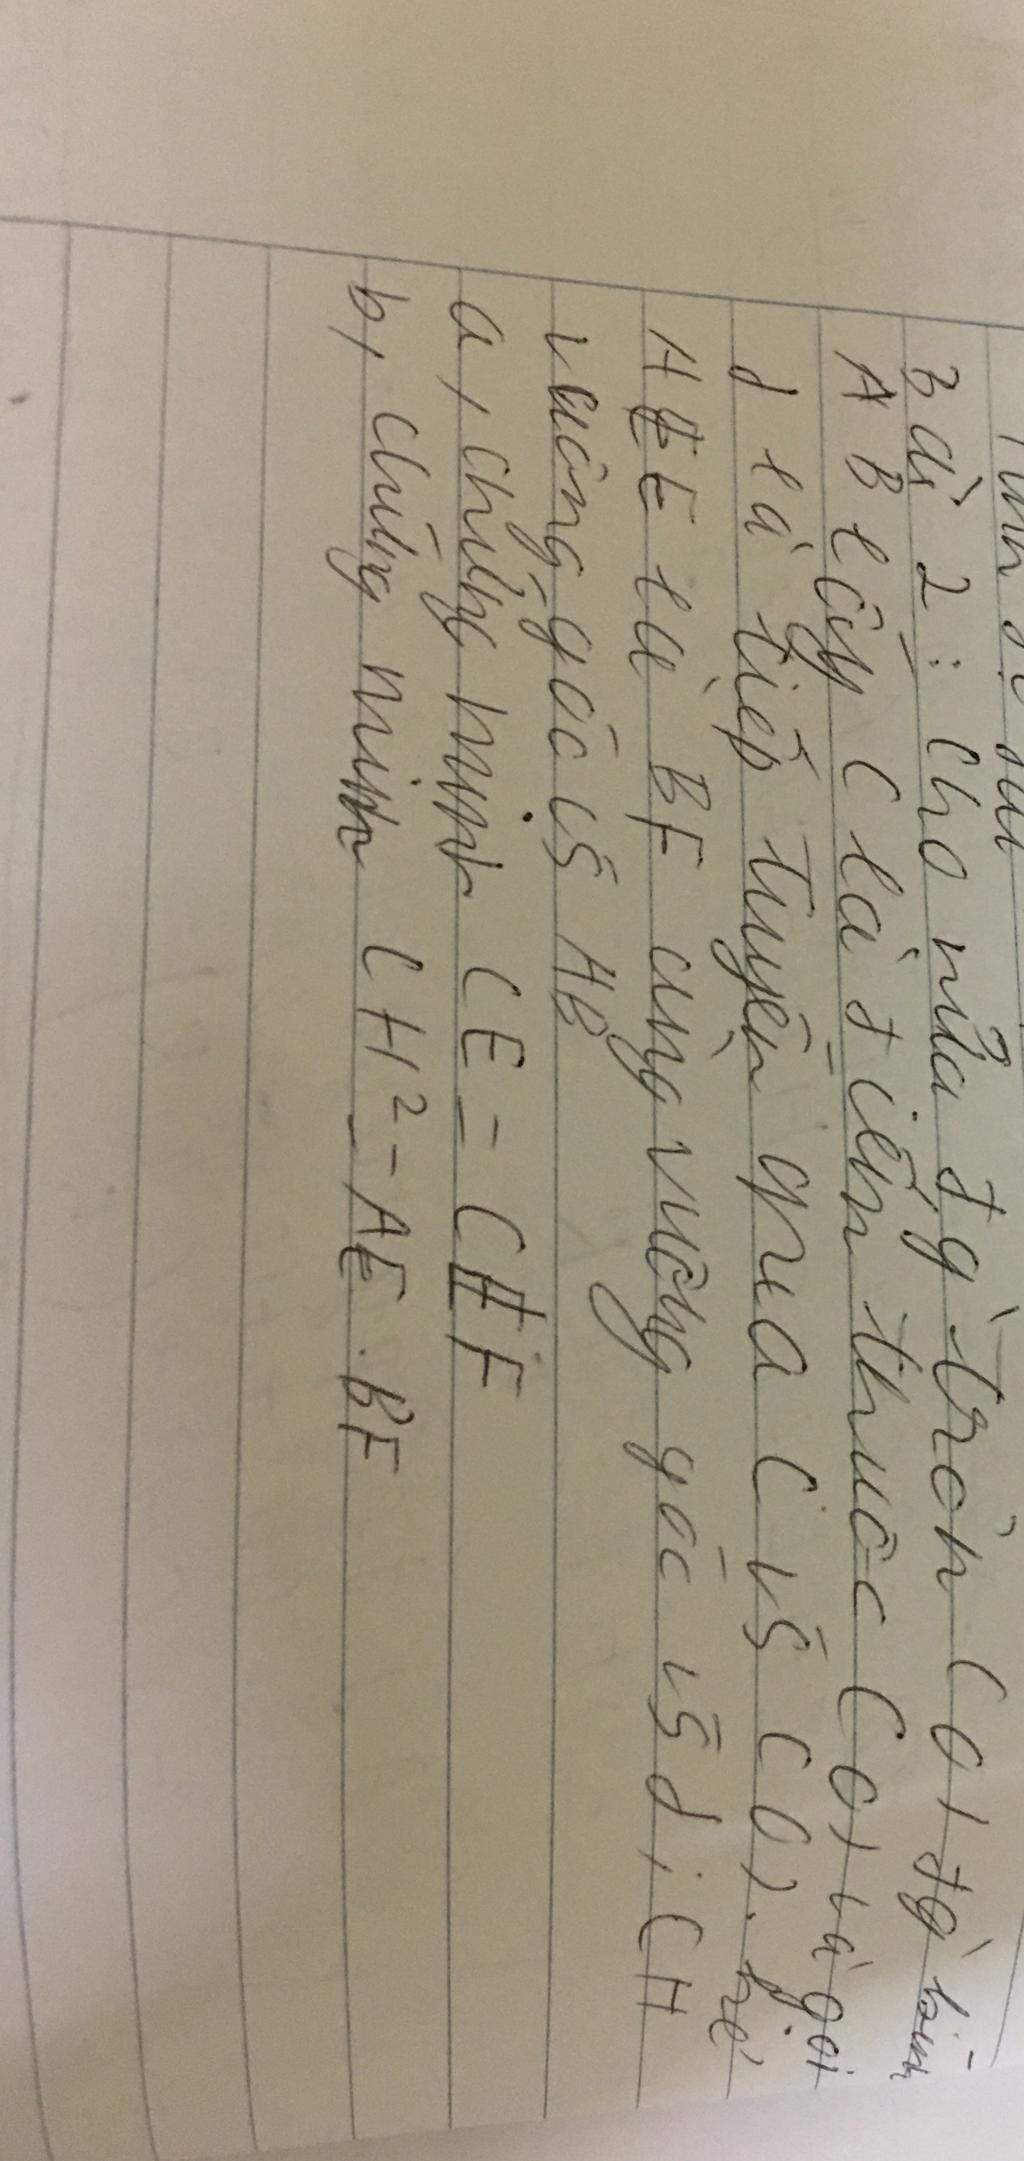 Bài 2: Cho nửa đg tròn (O) đg kính
AB lấy C là điểm thuộc (O) và gọi
d là tiếp tuyến qua C vs (O). kẻ
AE và BF cùng vuông góc vs d; CH
vuông góc vs AB
a, chứng minh CE = CF
b, chứng minh CH² = AE.BF